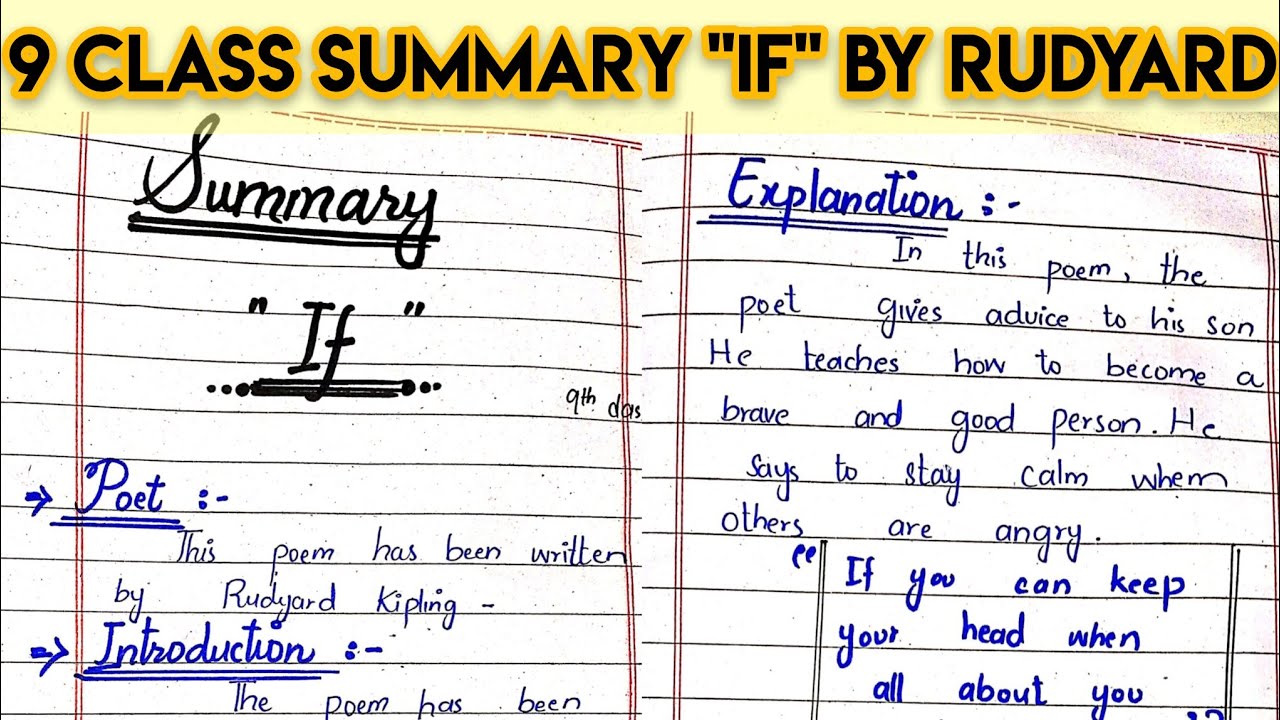 9 CLASS SUMMARY "IF" BY RUDYARD
Summary
" If "
9th
⇒ Poet :-
This poem has been written
by Rudyard Kipling -
⇒ Introduction :-
The poem has been
Explanation :-
In this poem, the
poet gives advice to his son
He teaches how to become a
brave and good person. He
says to stay calm whem
others are angry.
“ If you can keep
your head when
all about you